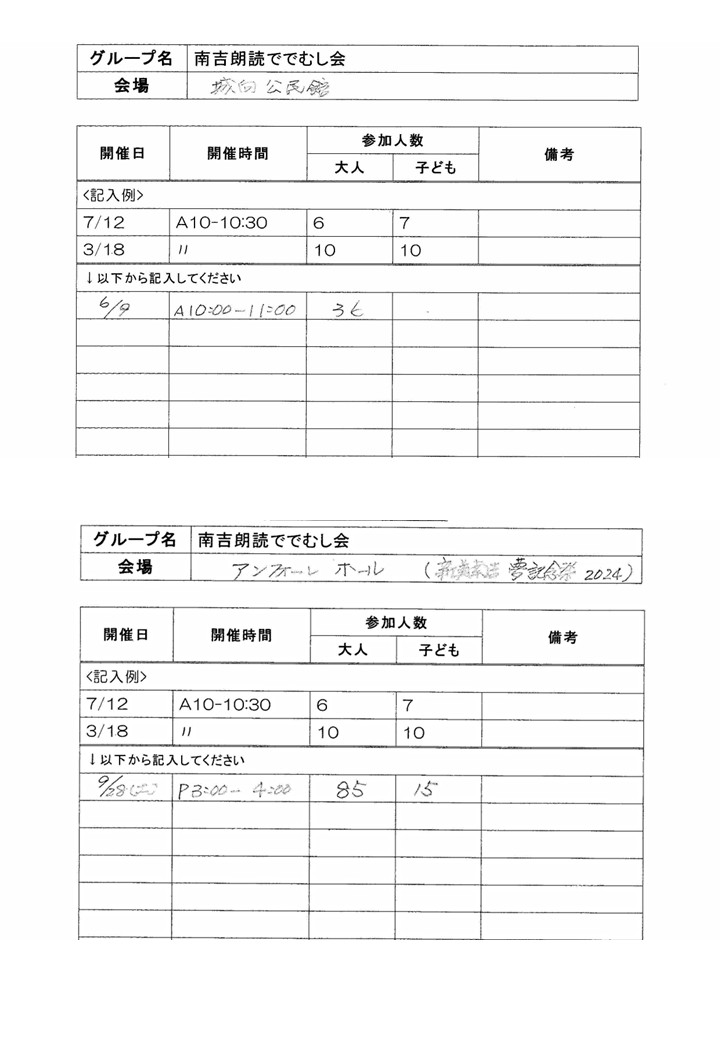 グループ名 南吉朗読ででむし会
会場 城向公民館
開催日 開催時間 参加人数 備考
大人 子ども
<記入例>
7/12 A10-10:30 6 7
3/18 〃 10 10
↓以下から記入してください
6/9 A10:00-11:00
グループ名 南吉朗読ででむし会
会場 アンフォーレ ホール (新美南吉 夢記念祭 2024)
開催日 開催時間 参加人数 備考
大人 子ども
<記入例>
7/12 A10-10:30 6 7
3/18 〃 10 10
↓以下から記入してください
9/28(土) P3:00- 4:00 85 15